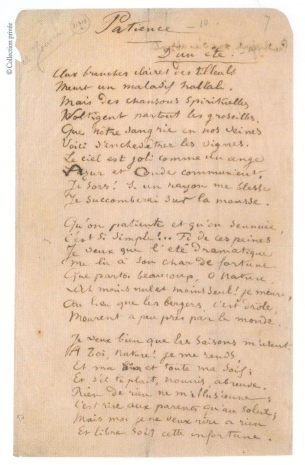 © Collection privée
Patience
D'un été.
Aux branches claires des tilleuls
Meurt un maladif hallali.
Mais des chansons spirituelles
Voltigent partout les groseilles.
Que notre sang rie en nos veines
Voici s'enchevêtrer les vignes.
Le ciel est joli comme un ange
Azur et Onde communient.
Je sors! Si un rayon me blesse
Je succomberai sur la mousse.
Qu'on patiente et qu'on s'ennuie,
C'est si simple!... Fi de ces peines
Je veux que l'été dramatique
Me lie à son char de fortune.
Que par toi beaucoup, ô Nature,
Ah moins nul et moins seul! je meure,
Au lieu que les bergers, c'est drôle,
Meurent à peu près par le monde.
Je veux bien que les saisons m'usent
A Toi, Nature! je me rends,
Et ma faim et toute ma soif;
Et s'il te plaît, nourris, abreuve.
Rien de rien ne m'illusionne;
C'est rire aux parents qu'au soleil,
Mais moi je ne veux rire à rien
Et libre soit cette infortune.